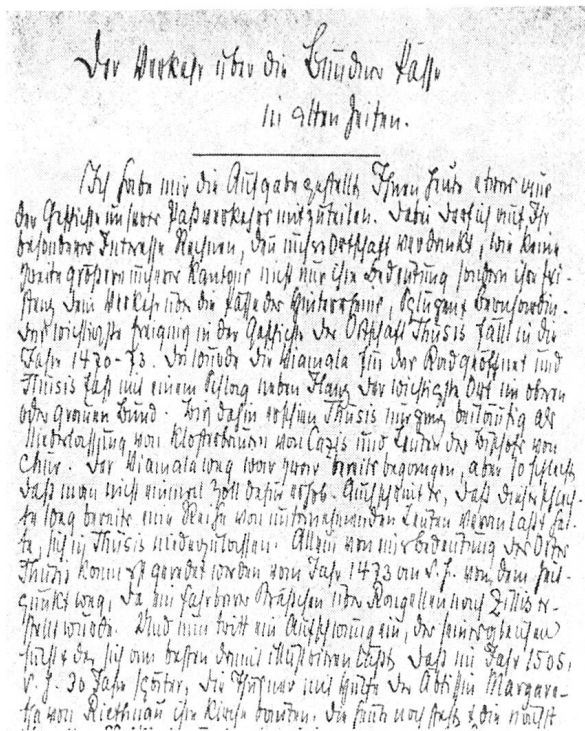 Der Verkehr über die Bündner Pässe
in alten Zeiten.
Ich habe mir die Aufgabe gestellt, Ihnen heute etwas aus
der Geschichte unseres Paßverkehrs mitzuteilen. Dabei darf ich auf Ihr
besonderes Interesse rechnen, denn unsere Ortschaft verdankt, wie keine
zweite größere unseres Kantons nicht nur ihre Bedeutung sondern ihre Exi-
stenz dem Verkehr über die Pässe des Hinterrheins, Splügen & Bernhardin.
Das wichtigste Ereignis in der Geschichte der Ortschaft Thusis fällt in die
Jahre 1470-73. Da wurde die Viamala für das Rad geöffnet und
Thusis fast mit einem Schlag neben Ilanz der wichtigste Ort im oberen
oder grauen Bund. Bis dahin erschien Thusis nur ganz beiläufig als
Niederlassung von Klosterbauern von Cazis und Leuten des Bischofs von
Chur. Der Viamalaweg war zwar bereits begangen, aber so schlecht,
daß man nicht einmal Zoll dafür erhob. Auch scheint es, daß dieser schlech-
te Weg bereits eine Reihe von unternehmenden Leuten veranlaßt hat-
te, sich in Thusis niederzulassen. Allein von einer Bedeutung des Ortes
Thusis kann erst geredet werden vom Jahr 1473 an d. h. von dem Zeit-
punkt weg, da ein fahrbares Sträßchen über Rongellen nach Zillis er-
stellt wurde. Und nun tritt ein Aufschwung ein, der seinesgleichen
sucht & der sich am besten damit illustrieren läßt, daß im Jahr 1505,
d. h. 30 Jahre später, die Thusner mit Hülfe der Äbtissin Margare-
tha von Riethnau ihre Kirche bauten, die heute noch steht & die nächst